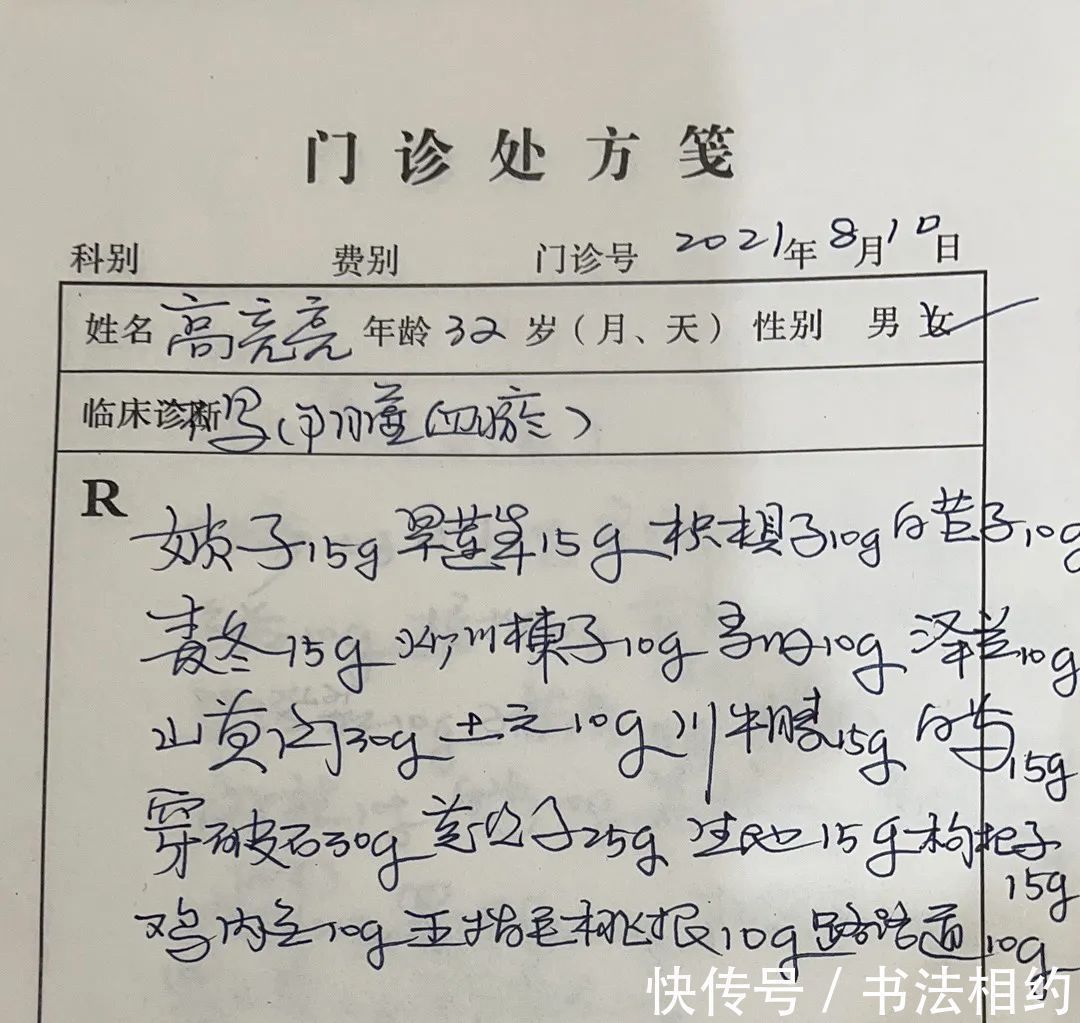 门诊处方笺
科别 费别 门诊号 2021年8月10日
姓名 高亮亮 年龄 32 岁（月、天） 性别 男 女
临床诊断
R 女贞子15g 旱莲草15g 枳椇子10g 白芷子10g
麦冬15g 川楝子10g 寻母10g 泽兰10g
山萸肉30g 土元10g 川牛膝15g 白芍15g
穿破石30g 25g 生地15g 枸杞子15g
鸡内金10g 五指毛桃根10g 路路通10g
快传号 / 书法相约